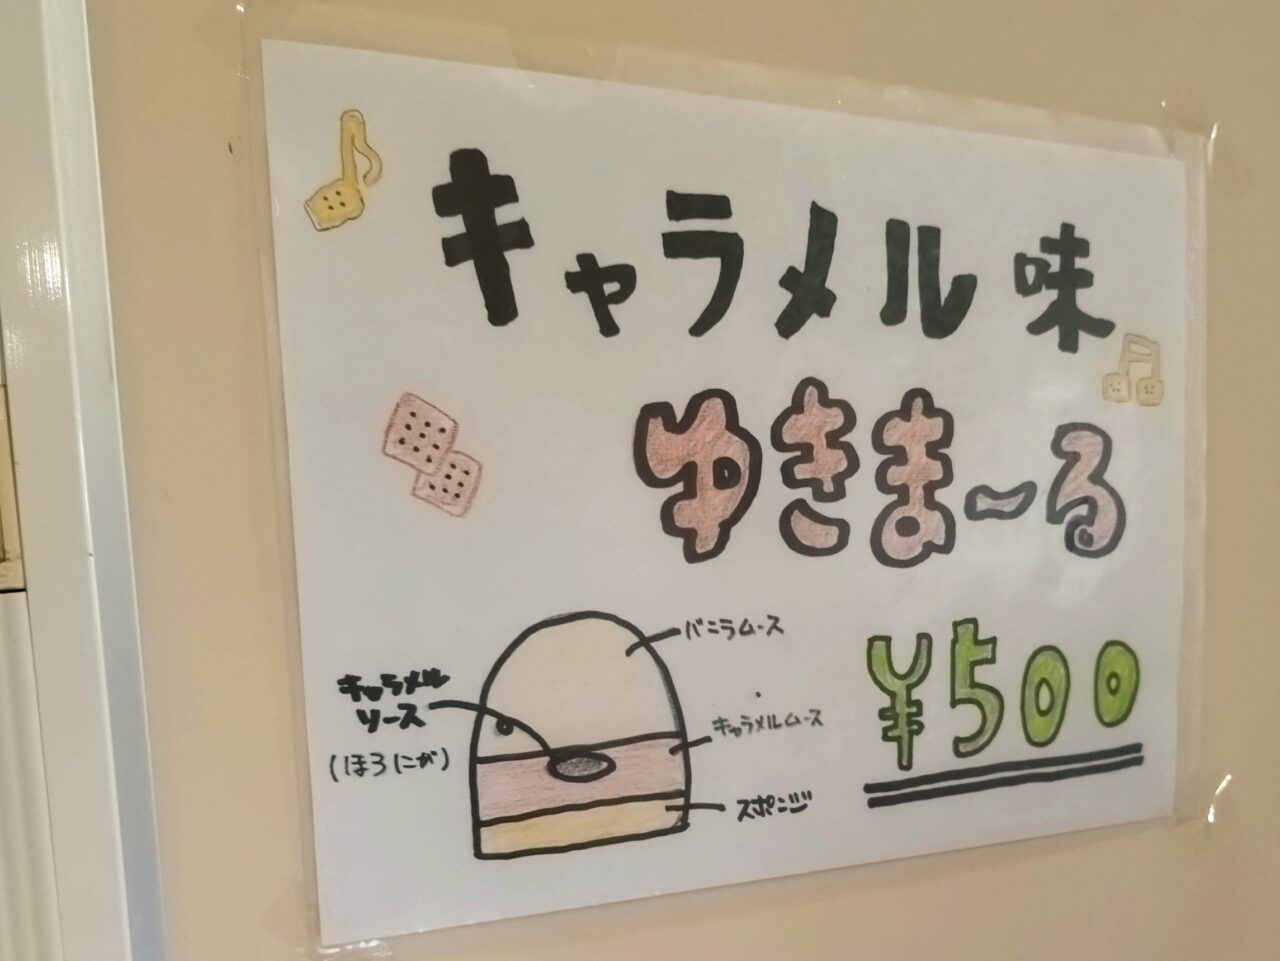 キャラメル味
ゆきまーる
バニラムース
キャラメル
ソース
(ほろにが)
キャラメルムース
スポンジ
¥500